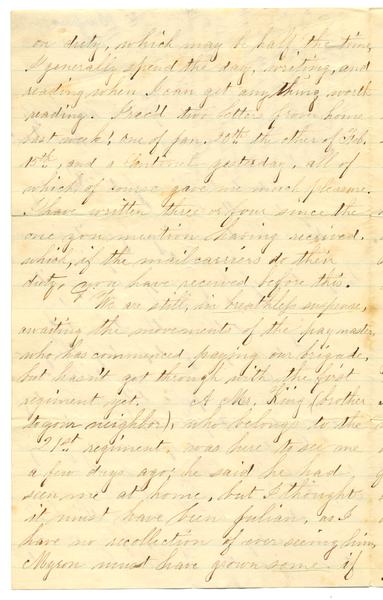 on duty, which may be half the time,
I generally spend the day, writing, and
reading when I can get any thing worth
reading. I rec'd two letters from home
last week! one of Jan. 20th the other of Feb.
15th, and a yesterday, all of
which of course gave me much pleasure.
I have written three or four since the
one you mention having received.
which, if the mail carriers do their
duty, you have received before this.
We are still, in breathless suspense,
awaiting the movements of the paymaster,
who has commenced paying our brigade,
but hasn't got through with the first
regiment yet. A Mr. King (brother
to your neighbor), who belongs to the
21st regiment, was here to see me
a few days ago; he said he had
seen me at home, but I thought
it must have been Julian, as I
have no recollection of ever seeing him,
Myron must have grown some if